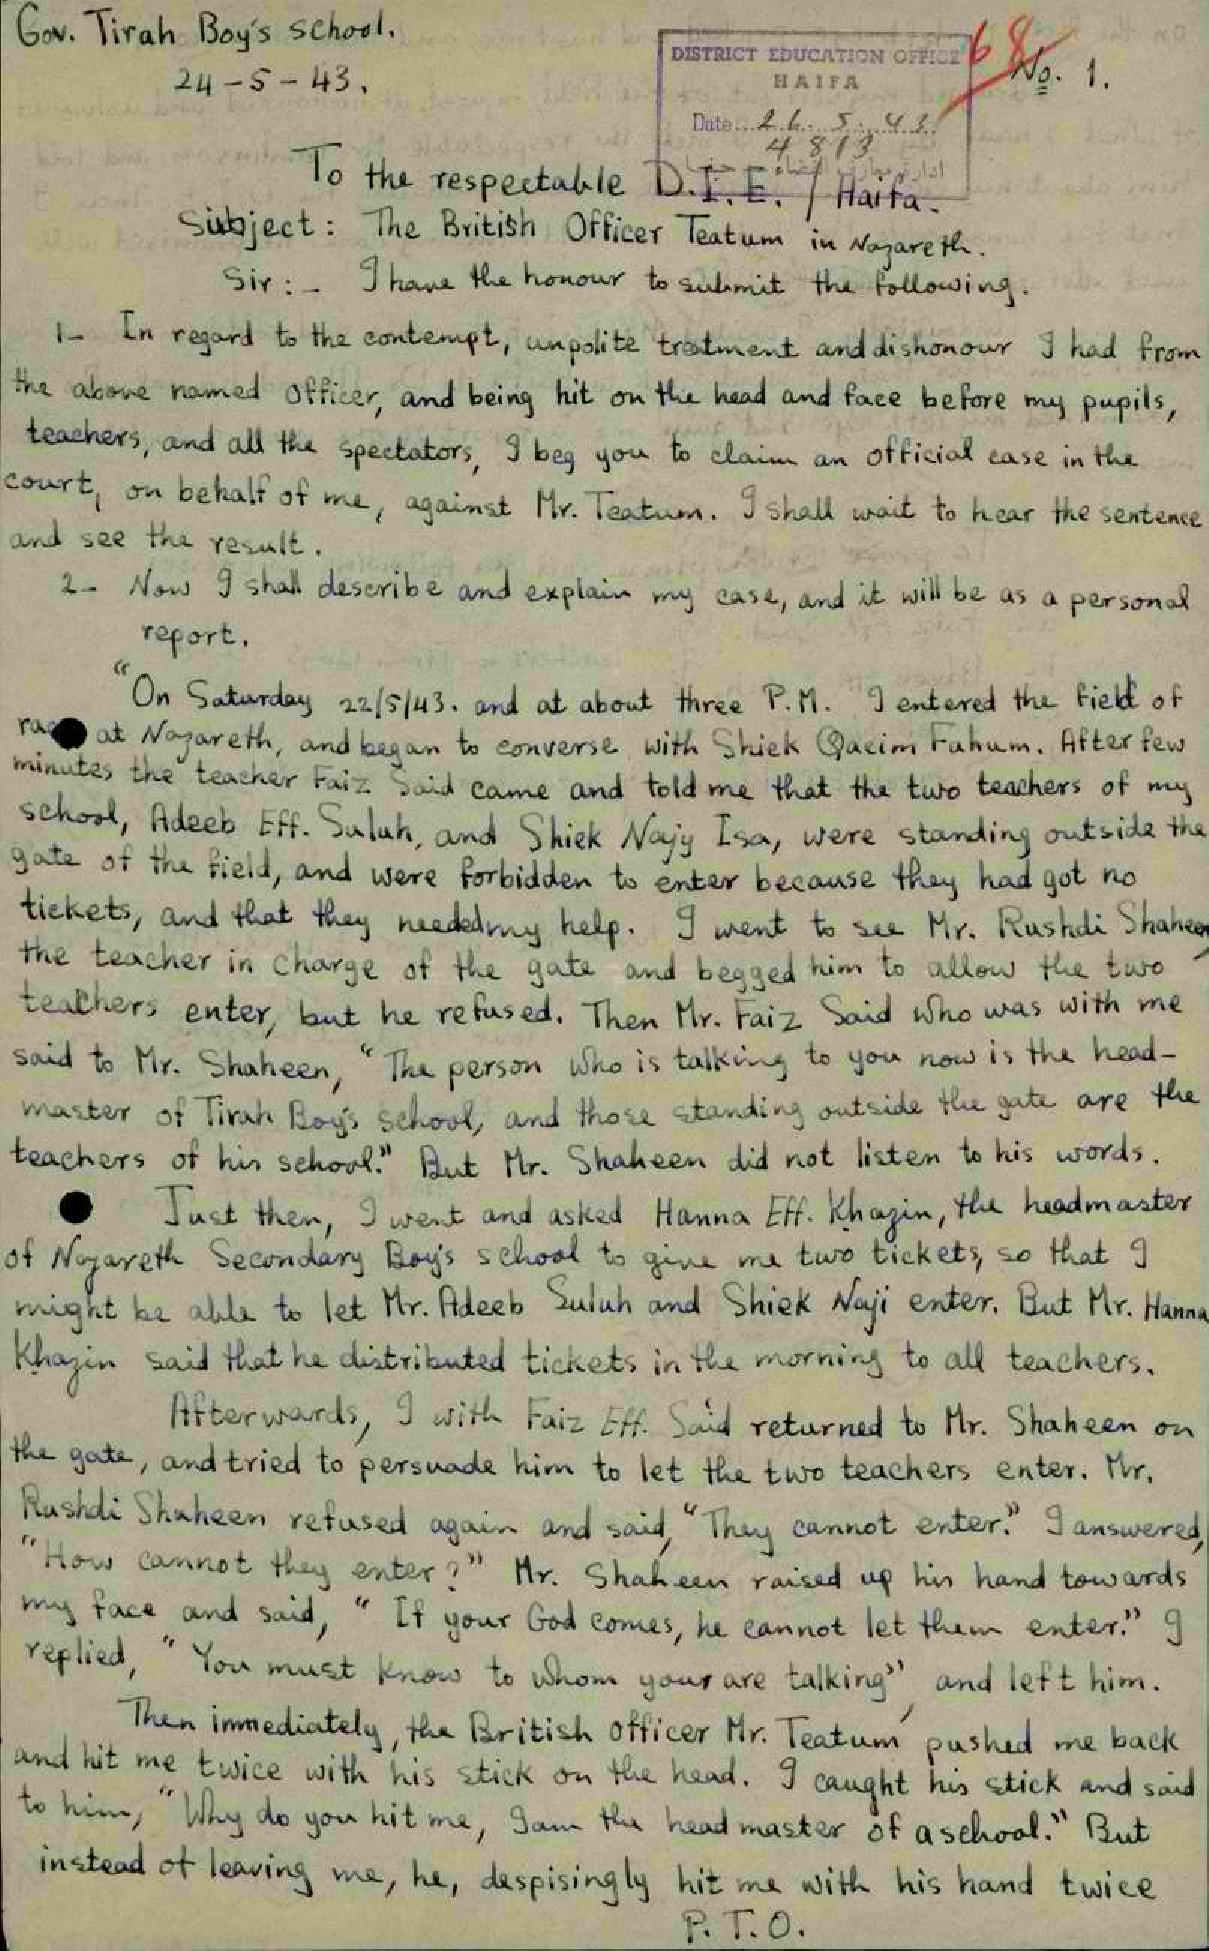 Gov. Tirah Boy's school.
24-5-43.
DISTRICT EDUCATION OFFICE
HAIFA
Date 26. 5. 43
4813
68
No. 1.
To the respectable D.I.E. / Haifa.
Subject: The British Officer Teatum in Nazareth.
Sir:- I have the honour to submit the following.
1- In regard to the contempt, unpolite treatment and dishonour I had from
the above named officer, and being hit on the head and face before my pupils,
teachers, and all the spectators, I beg you to claim an official case in the
court, on behalf of me, against Mr. Teatum. I shall wait to hear the sentence
and see the result.
2- Now I shall describe and explain my case, and it will be as a personal
report.
"On Saturday 22/5/43. and at about three P.M. I entered the field of
at Nazareth, and began to converse with Shiek Qacim Fahum. After few
minutes the teacher Faiz Said came and told me that the two teachers of my
school, Adeeb Eff. Suluh, and Shiek Najy Isa, were standing outside the
gate of the field, and were forbidden to enter because they had got no
tickets, and that they needed my help. I went to see Mr. Rushdi Shaheen,
the teacher in charge of the gate and begged him to allow the two
teachers enter, but he refused. Then Mr. Faiz Said who was with me
said to Mr. Shaheen, "The person who is talking to you now is the head-
master of Tirah Boy's school, and those standing outside the gate are the
teachers of his school." But Mr. Shaheen did not listen to his words.
Just then, I went and asked Hanna Eff. Khazin, the headmaster
of Nazareth Secondary Boy's school to give me two tickets, so that I
might be able to let Mr. Adeeb Suluh and Shiek Naji enter. But Mr. Hanna
Khazin said that he distributed tickets in the morning to all teachers.
Afterwards, I with Faiz Eff. Said returned to Mr. Shaheen on
the gate, and tried to persuade him to let the two teachers enter. Mr.
Rushdi Shaheen refused again and said, "They cannot enter." I answered,
"How cannot they enter?" Mr. Shaheen raised up his hand towards
my face and said, "If your God comes, he cannot let them enter." I
replied, "You must know to whom your are talking", and left him.
Then immediately, the British officer Mr. Teatum pushed me back
and hit me twice with his stick on the head. I caught his stick and said
to him, "Why do you hit me, I am the headmaster of a school." But
instead of leaving me, he, despisingly hit me with his hand twice
P.T.O.